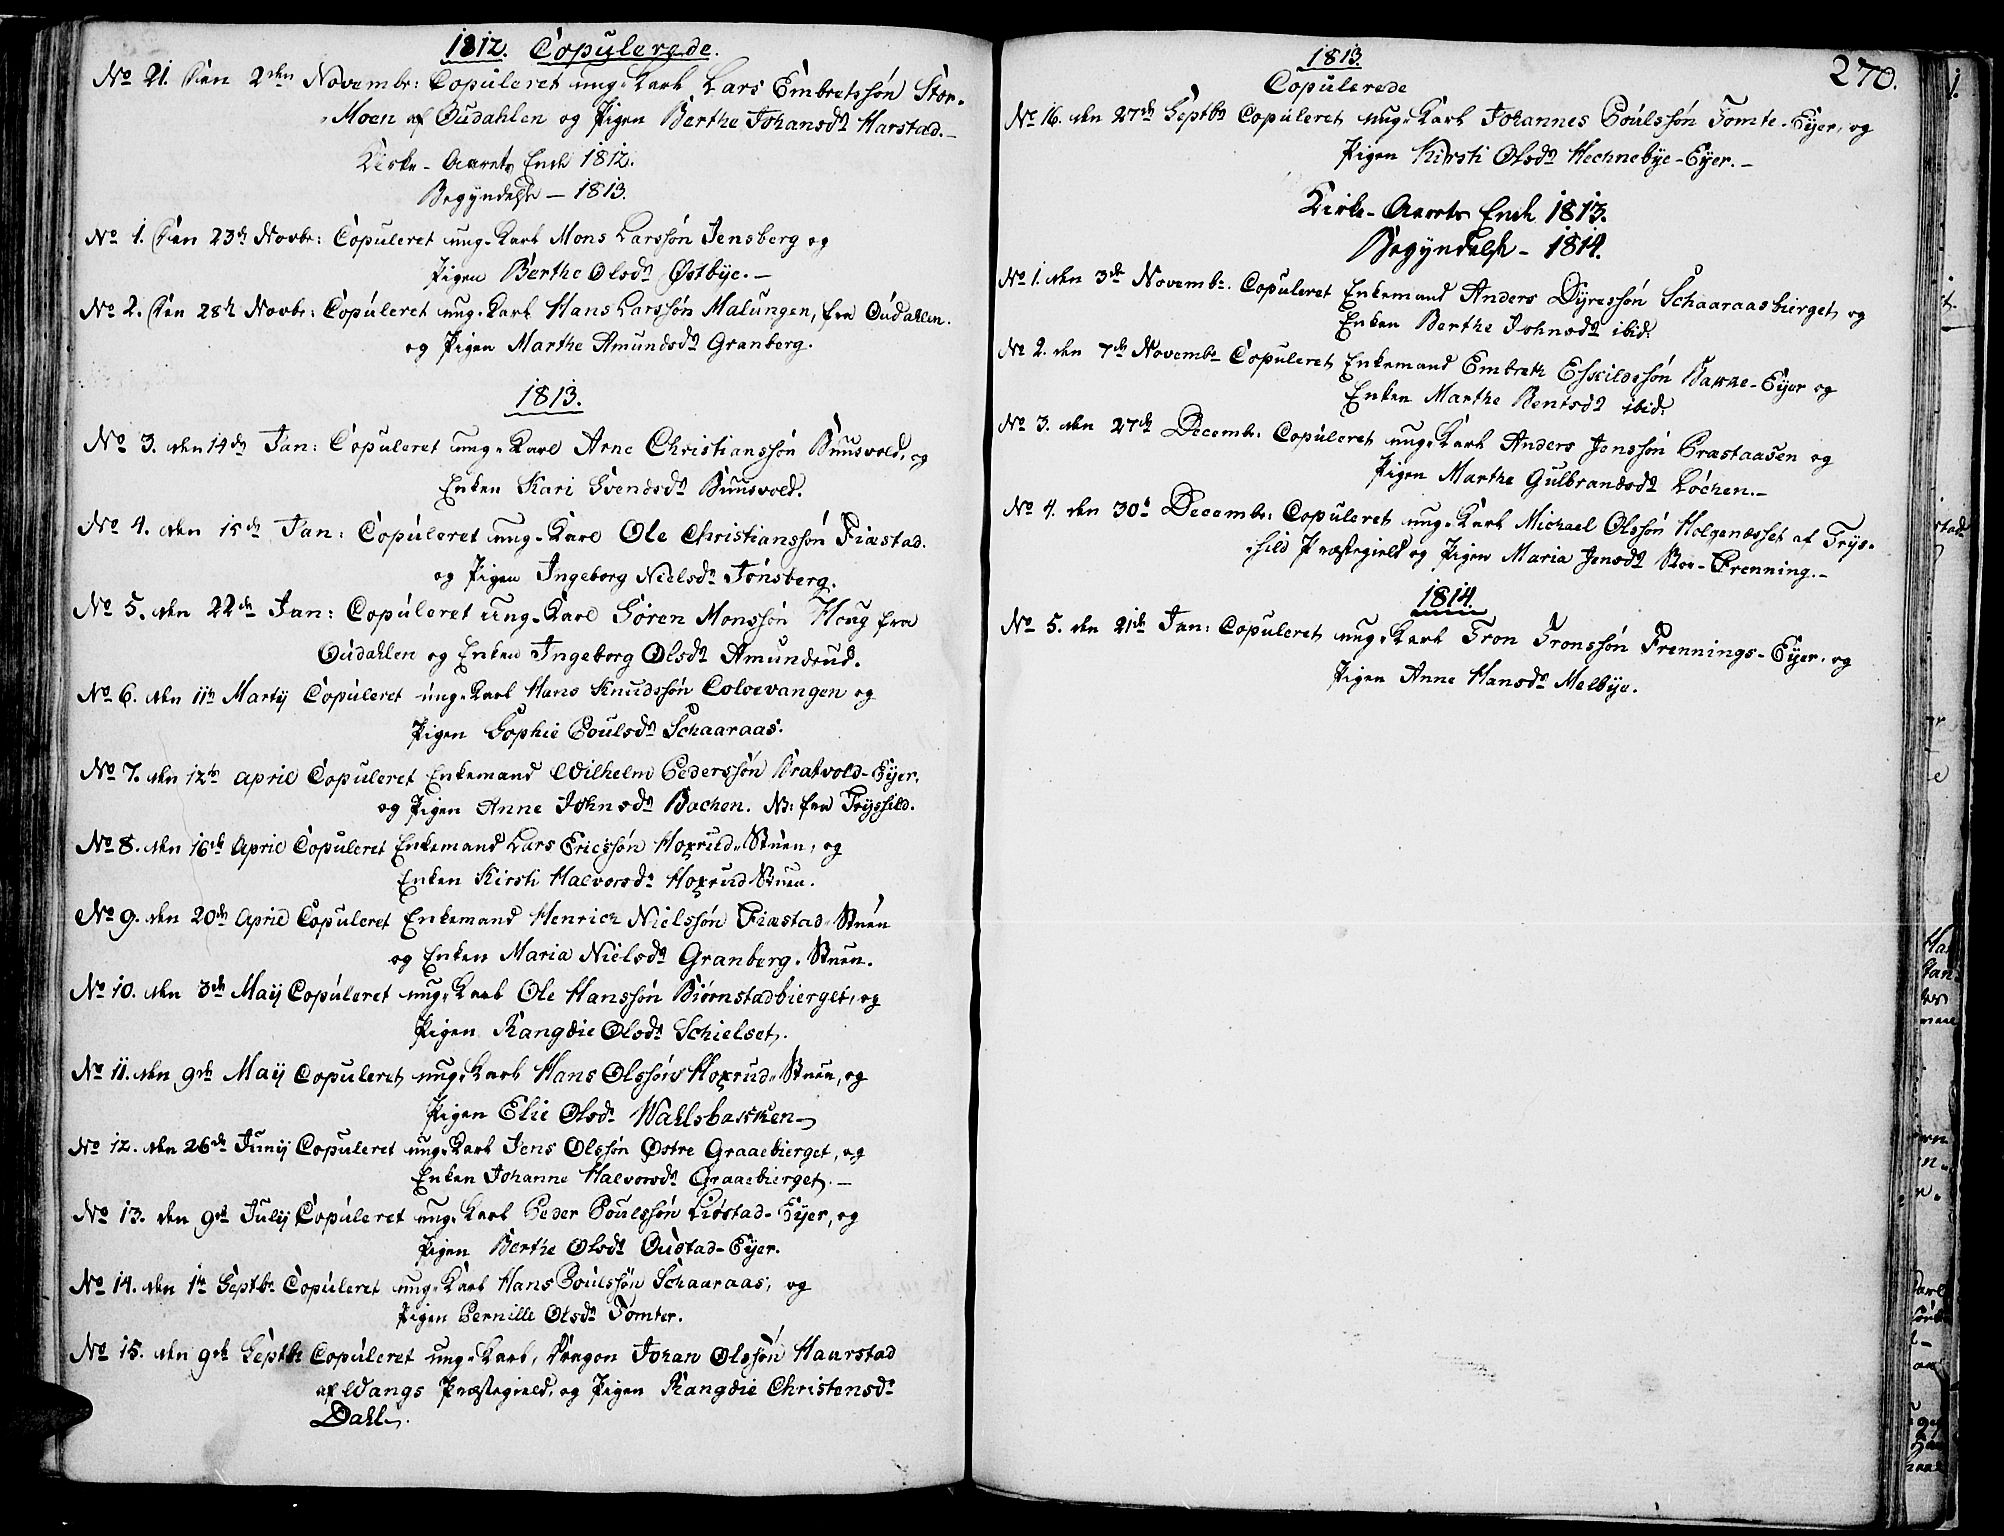 1812. Copulerede.
No 21. Den 2den Novembr: Copuleret ung-Karl Lars Embretssøn Stor-
Moen af Oudahlen og Pigen Berthe Johansdr Harstad.-
Kirke-Aarets Ende 1812.
Begyndelse - 1813.
No 1. Den 23de Novbr: Copuleret ung-Karl Mons Larssøn Jensberg og
Pigen Berthe Olsdr Østbÿe.-
No 2. Den 28de Novbr: Copuleret ung-Karl Hans Larssøn Malungen, fra Oudahlen.
og Pigen Marthe Amundsdr Granberg.
1813.
No 3. den 14de Jan: Copuleret ung-Karl Arne Christianssøn Buusvold, og
Enken Kari Svendsdr Buusvold.
No 4. den 15de Jan: Copuleret ung-Karl Ole Christianssøn Fiæstad.
og Pigen Ingeborg Nielsdr Jønsberg.
No 5. den 22de Jan: Copuleret ung-Karl Søren Monssøn Houg fra
Oudahlen og Enken Ingeborg Olsdr Amundrud.
No 6. den 11te Martÿ Copuleret ung-Karl Hans Knudssøn Coloevangen og
Pigen Sophie Poulsdr Schaaraas.
No 7. den 12te April Copuleret Enkemand Wilhelm Pederssøn Bratvold-Eÿer.
og Pigen Anne Johnsdr Bachen. NB: fra Trÿssild.
No 8. den 16de April Copuleret Enkemand Lars Ericssøn Hoxrud-Stuen, og
Enken Kirsti Halvorsdr Hoxrud Stuen.
No 9. den 20de April Copuleret Enkemand Henrich Nielssøn Fiæstad-Stuen
og Enken Maria Nielsdr Granberg-Stuen.
No 10. den 3de Maÿ Copuleret ung-Karl Ole Hanssøn Biørnstadbierget, og
Pigen Rangdie Olsdr Schielset.
No 11. den 9de Maÿ Copuleret ung-Karl Hans Olssøn Hoxrud-Stuen, og
Pigen Elie Olsdr Wahlsbakken-
No 12. den 26de Junÿ Copuleret ung-Karl Jens Olssøn Østre Graaebierget, og
Enken Johanne Halvorsdr Graaebierget.-
No 13. den 9de Julÿ Copuleret ung-Karl Peder Poulssøn Liøstad-Eÿer, og
Pigen Berthe Olsdr Oustad-Eÿer.
No 14. den 1te Septbr Copuleret ung-Karl Hans Poulssøn Schaaraas, og
Pigen Pernille Olsdr Tomter.
No 15. den 9de Septbr Copuleret ung-Karl, Dragon Johan Olssøn Haarstad
af Wangs Præstegield, og Pigen Rangdie Christensdr
Dahl.
270.
1813.
Copulerede
No 16. den 27de Septbr Copuleret ung-Karl Johannes Poulssøn Tomte-Eÿer, og
Pigen Kirsti Olsdr Hechnebÿe-Eÿer.-
Kirke-Aarets Ende 1813.
Begÿndelse - 1814.
No 1. den 3de Novembr. Copuleret Enkemand Anders Dÿressøn Schaaraasbierget, og
Enken Berthe Johnsdr ibid.
No 2. den 7de Novembr Copuleret Enkemand Embreth Eskildssøn Bakke-Eÿer og
Enken Marthe Bentsdr ibid.
No 3. den 27de Decembr: Copuleret ung-Karl Anders Jenssøn Præstaasen og
Pigen Marthe Gulbrandsdr Løchen.-
No 4. den 30te Decembr: Copuleret ung-Karl Michael Olssøn Holgenæsset af Trÿs-
sild Præstegield og Pigen Maria Jensdr Stor-Frenning.-
1814.
No 5. den 21de Jan: Copuleret ung-Karl Tron Tronssøn Frennings-Eÿer, og
Pigen Anne Hansdr Melbÿe.